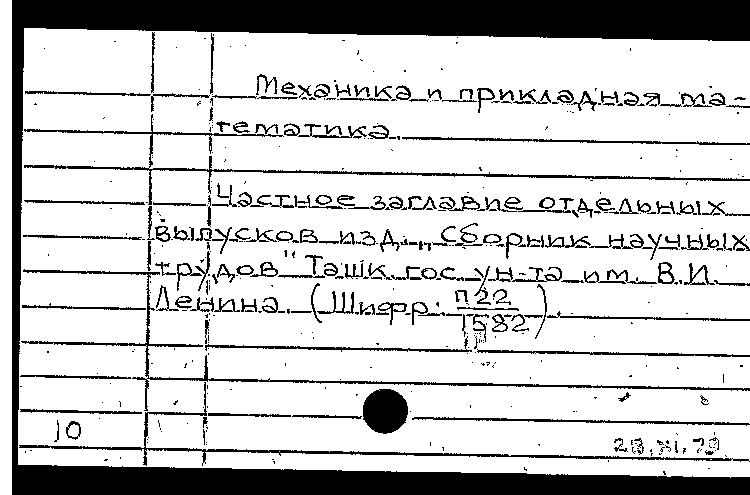 Механика и прикладная ма-
тематика.
Частное заглавие отдельных
выпусков изд. „Сборник научных
трудов" Ташк. гос. ун-та им. В.И.
Ленина. (Шифр: П22
1582).
10
28.XI.79